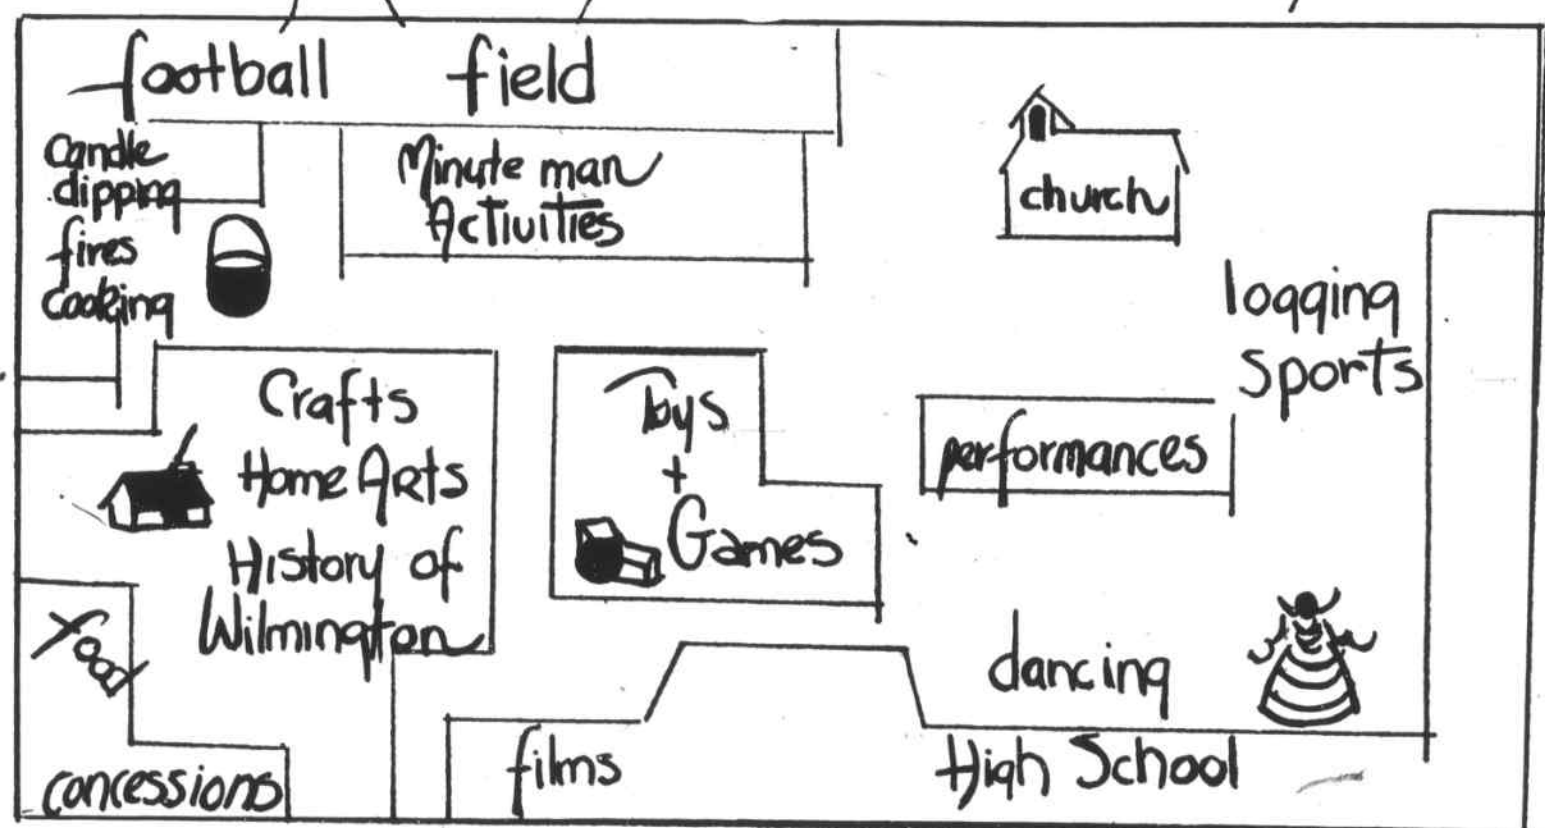 football field
Candle
dipping
fires
cooking
Minute man
Activities
church
logging
sports
Crafts
Home Arts
History of
Wilmington
Toys
+
Games
performances
food
dancing
concessions
films
High School